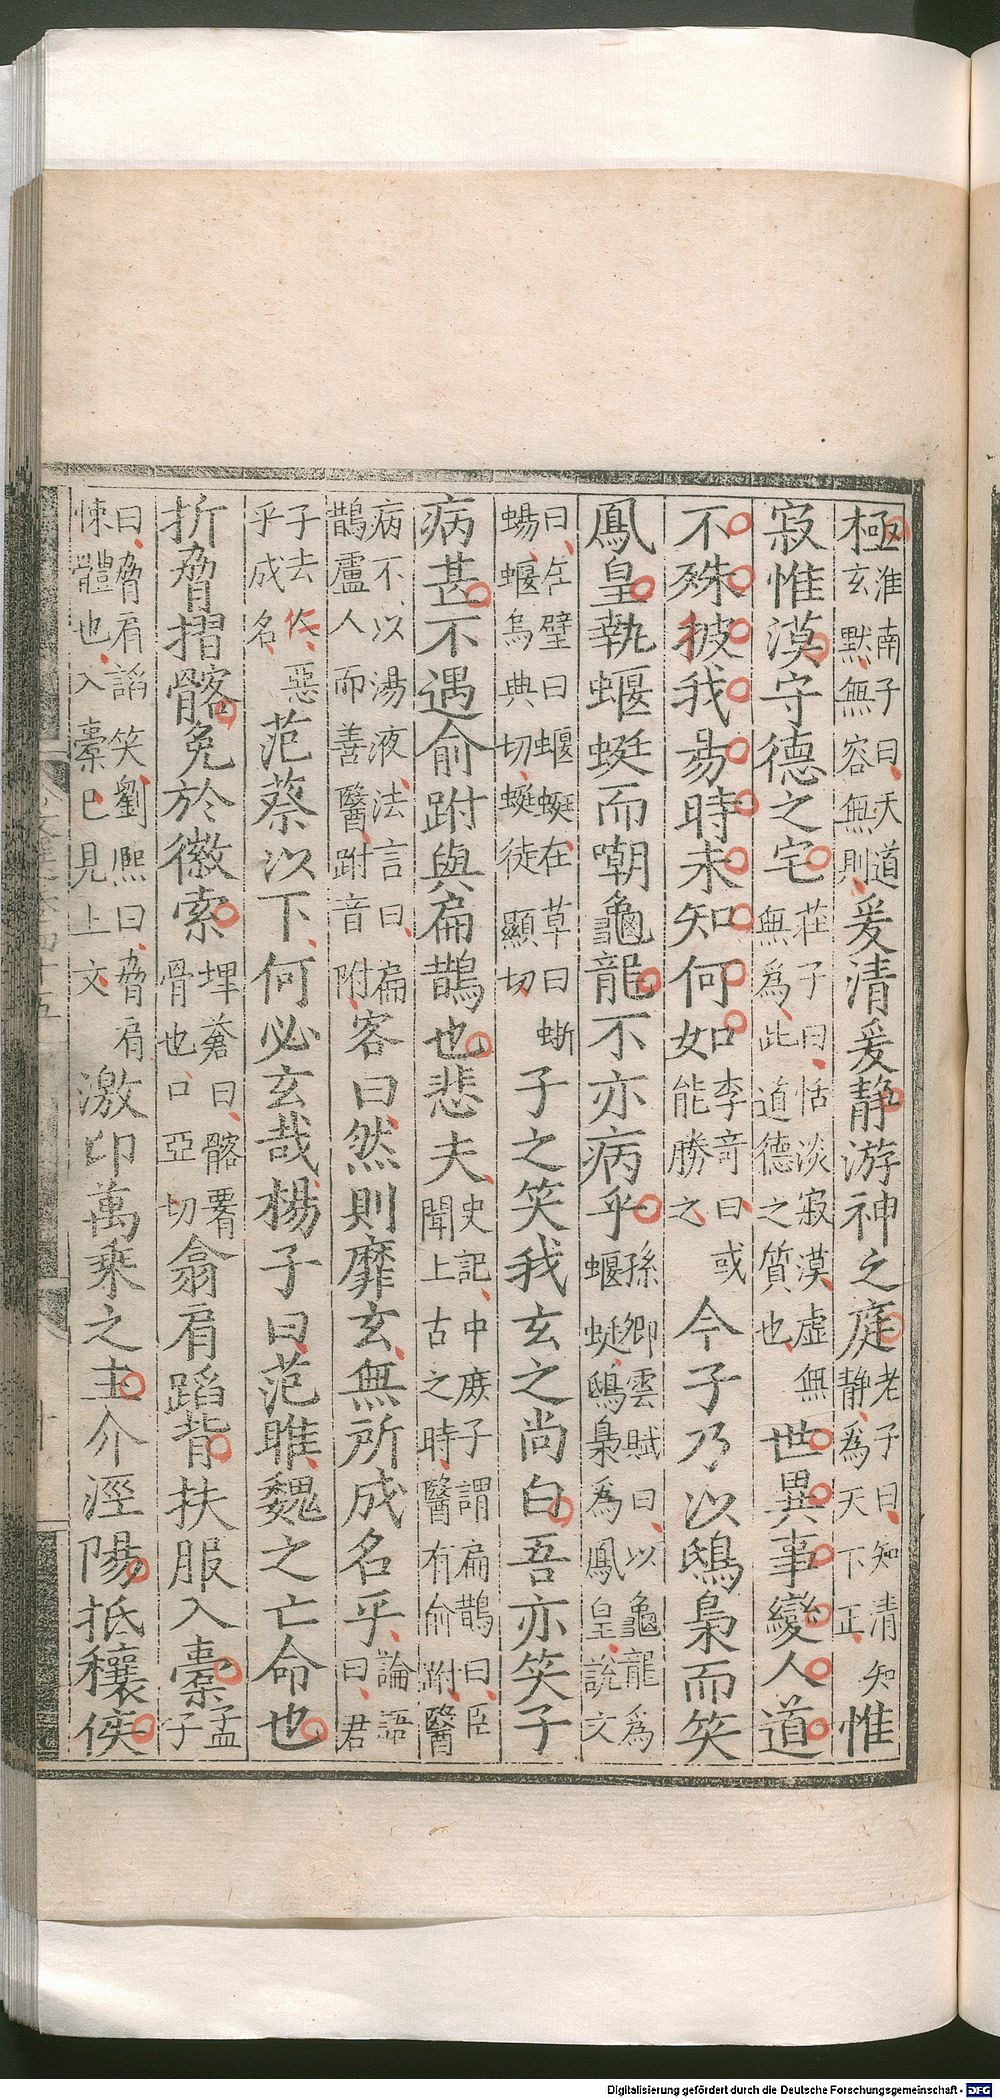 極淮南子曰天道玄默無容無則爰清爰靜游神之庭老子曰知清知靜為天下正惟
寂惟漠守德之宅莊子曰恬淡寂漠虛無無為此道德之質也世異事變人道
不殊彼我易時未知何如李竒曰或能勝之今子乃以鴟梟而笑
鳳皇執蝘蜓而嘲龜龍不亦病乎孫卿雲賦曰以龜龍為蝘蜓鴟梟為鳳皇說文
曰在壁曰蝘蜓在草曰蜥蜴蝘烏典切蜓徒顯切子之笑我玄之尚白吾亦笑子
病甚不遇俞跗與扁鵲也悲夫史記中庶子謂扁鵲曰臣聞上古之時醫有俞跗醫
病不以湯液法言曰扁鵲盧人而善醫跗音附客曰然則靡玄無所成名乎論語曰君
子去仁惡乎成名范蔡以下何必玄哉楊子曰范雎魏之亡命也
折脅摺髂免於徽索埤蒼曰髂𦝫骨也口亞切翕肩蹈背扶服入橐孟子
曰脅肩諂笑劉熙曰脅肩悚體也入橐已見上文激卬萬乗之主介涇陽抵穰侯
Digitalisierung gefördert durch die Deutsche Forschungsgemeinschaft - DFG